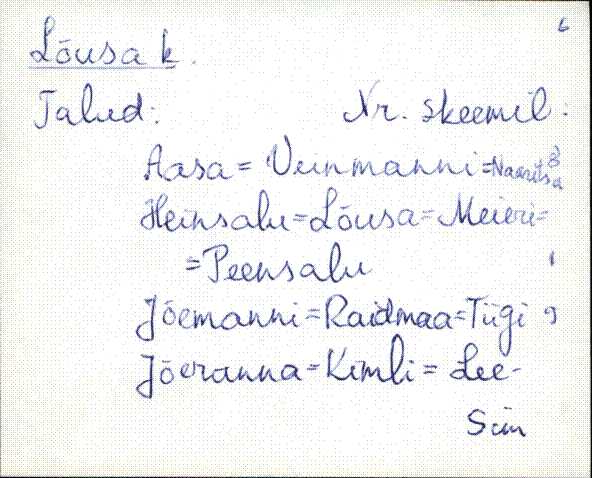 6
Lõusa k.
Talud: Nr. skeemil:
Aasa = Veinmanni = Naaritsa 8
Heinsalu = Lõusa = Meieri =
= Peensalu 1
Jõemanni = Raidmaa = Tiigi 9
Jõeranna = Kimli = Lee-